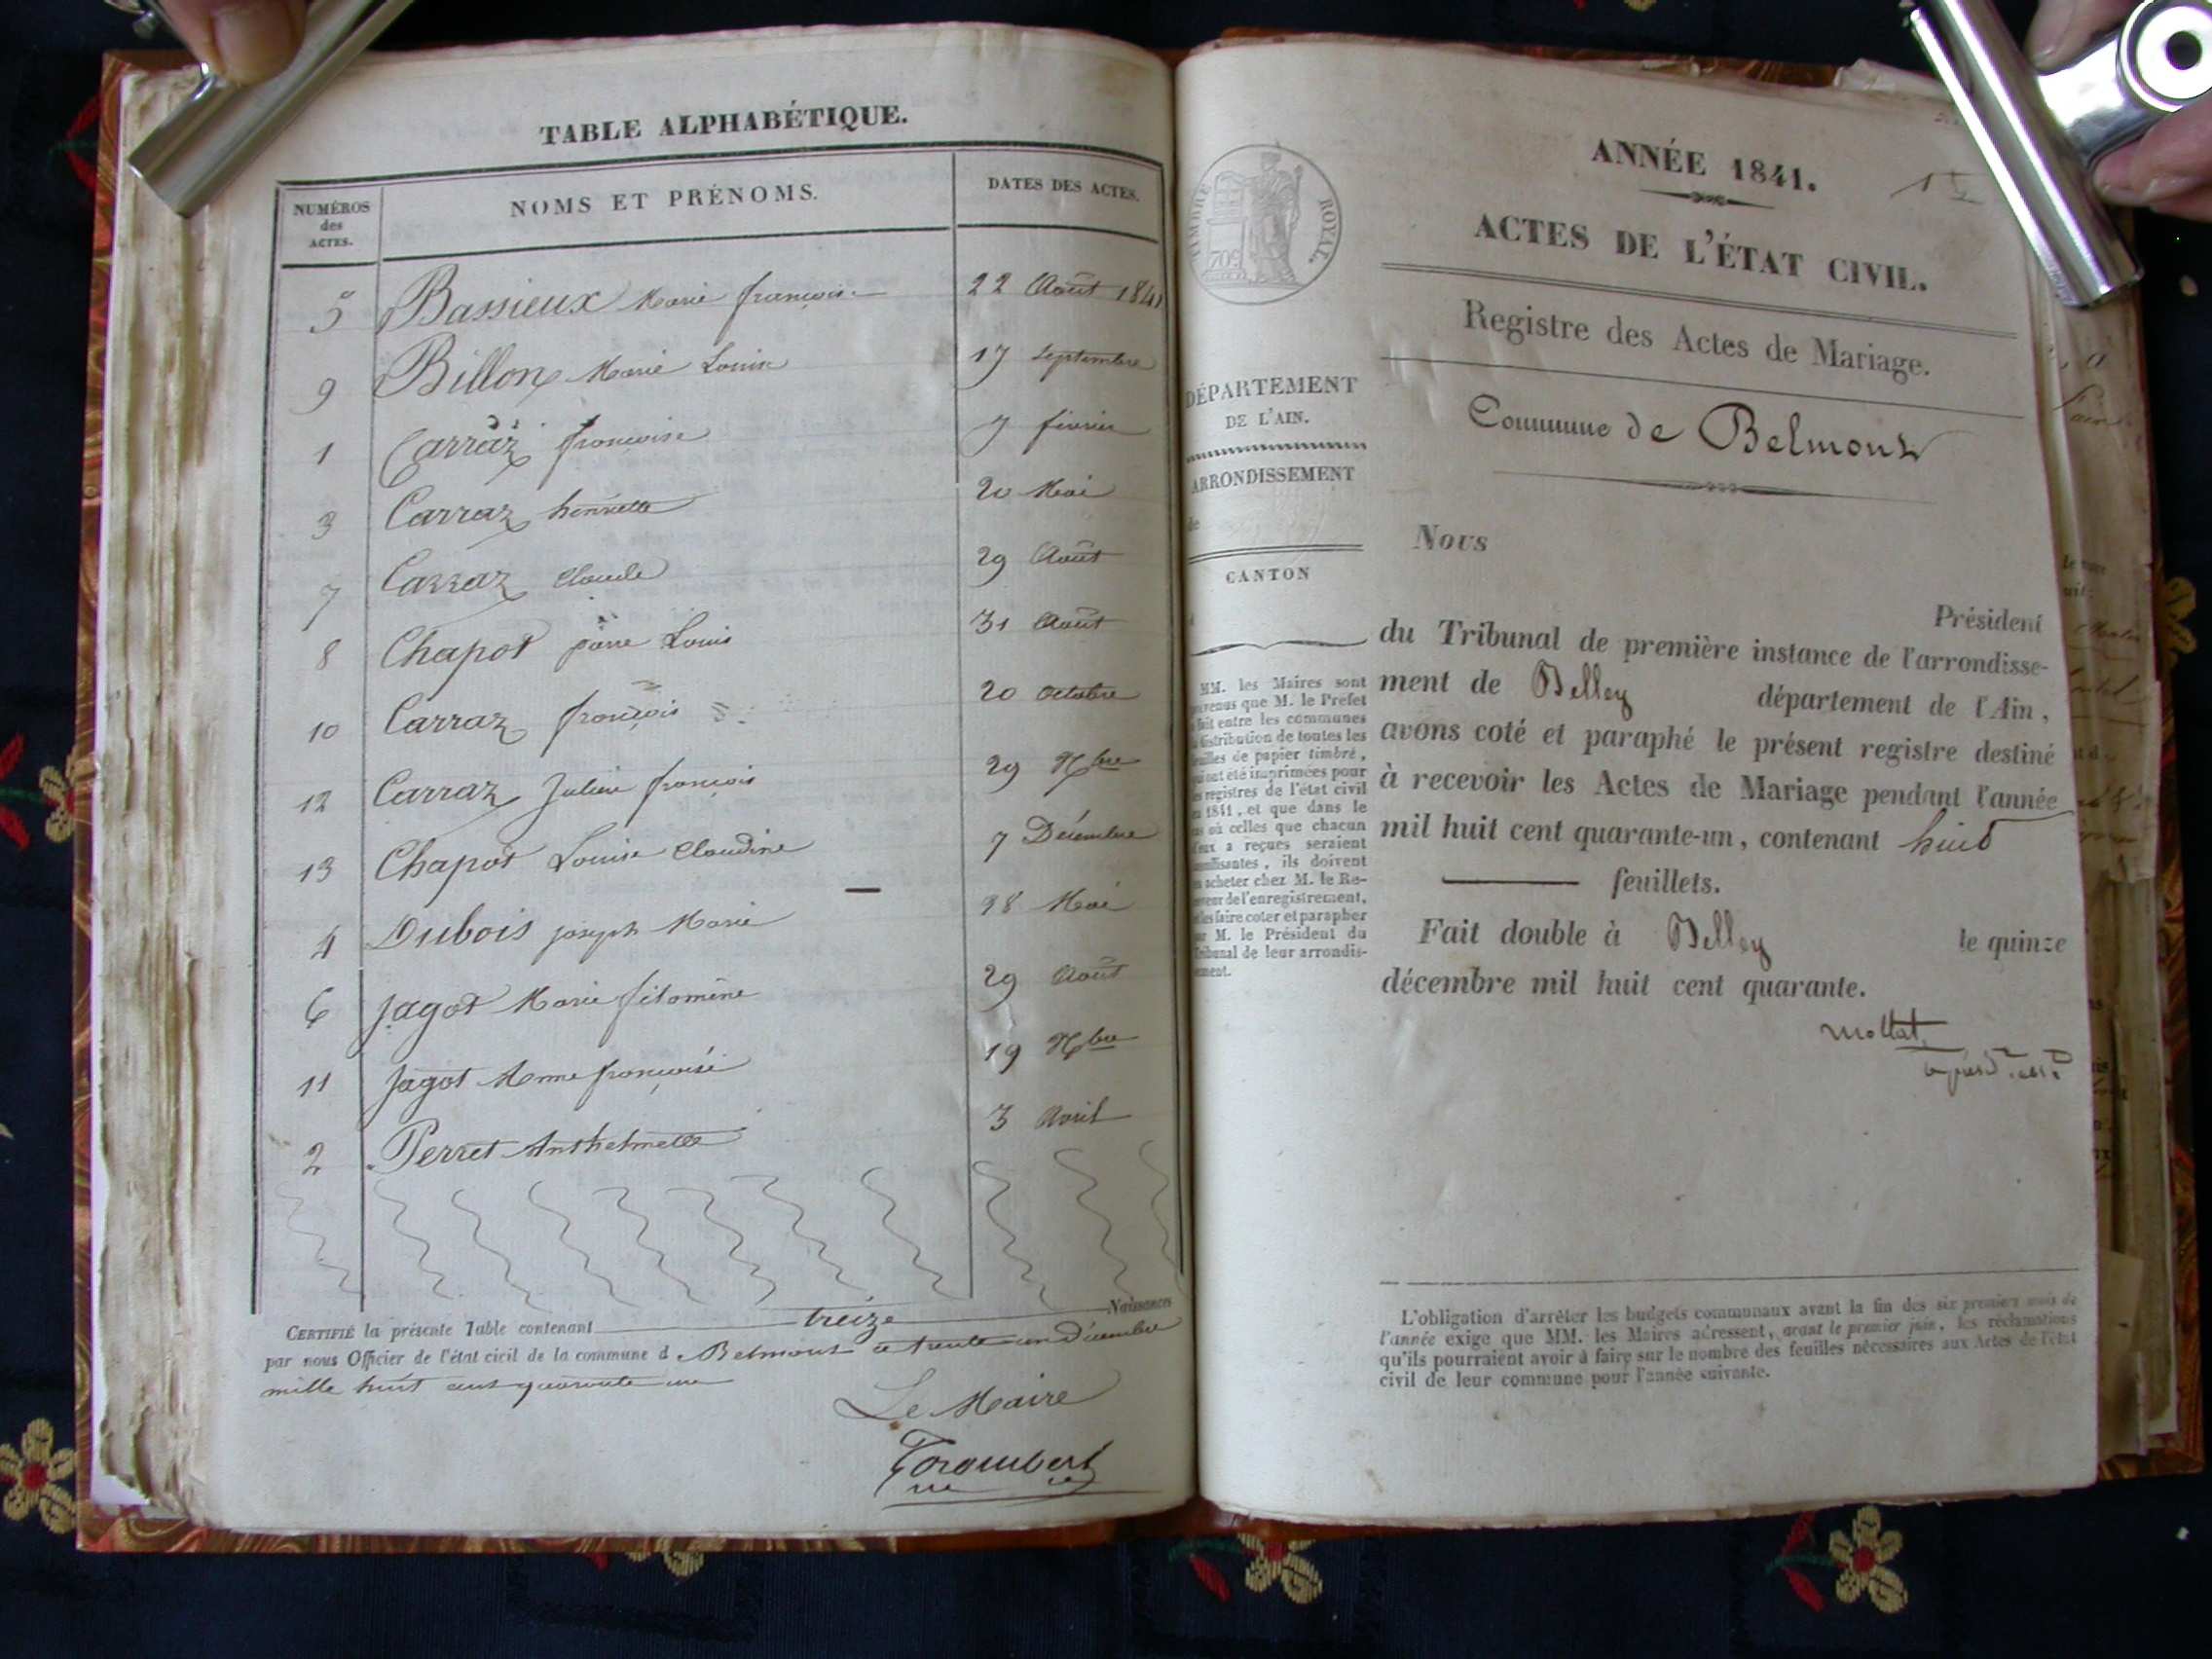 TABLE ALPHABÉTIQUE.
NUMÉROS des ACTES. NOMS ET PRÉNOMS. DATES DES ACTES.
5 Bassieux Marie françoise 22 Août 1841
9 Billon Marie Louise 17 Septembre
1 Carraz françoise 7 février
3 Carraz henriette 20 Mai
7 Carraz Claude 29 Août
8 Chapot pierre Louis 31 Août
10 Carraz françois 20 Octobre
12 Carraz Julien françois 29 9bre
13 Chapot Louise Claudine 7 Décembre
4 Dubois joseph Marie 28 Mai
6 Jagot Marie filomène 29 Août
11 Jagot Anne françoise 19 9bre
2 Perret Anthelmette 3 Avril
CERTIFIÉ la présente Table contenant treize Naissances
par nous Officier de l'état civil de la commune d Belmont ce trente un Décembre
mille huit cent quarante un
Le Maire
Trombert
TIMBRE ROYAL
70c
DÉPARTEMENT
DE L'AIN.
ARRONDISSEMENT
de
CANTON
MM. les Maires sont
prévenus que M. le Préfet
fait entre les communes
la distribution de toutes les
feuilles de papier timbré,
qui ont été imprimées pour
les registres de l'état civil
en 1841, et que dans le
cas où celles que chacun
d'eux a reçues seraient
insuffisantes, ils doivent
en acheter chez M. le Re-
ceveur de l'enregistrement,
et les faire coter et parapher
par M. le Président du
Tribunal de leur arrondis-
sement.
ANNÉE 1841.
ACTES DE L'ÉTAT CIVIL.
Registre des Actes de Mariage.
Commune de Belmont
Nous
Président
du Tribunal de première instance de l'arrondisse-
ment de Belley département de l'Ain,
avons coté et paraphé le présent registre destiné
à recevoir les Actes de Mariage pendant l'année
mil huit cent quarante-un, contenant huit
feuillets.
Fait double à Belley le quinze
décembre mil huit cent quarante.
Mollat
L'obligation d'arrêter les budgets communaux avant la fin des six premiers mois de
l'année exige que MM. les Maires adressent, avant le premier juin, les réclamations
qu'ils pourraient avoir à faire sur le nombre des feuilles nécessaires aux Actes de l'état
civil de leur commune pour l'année suivante.